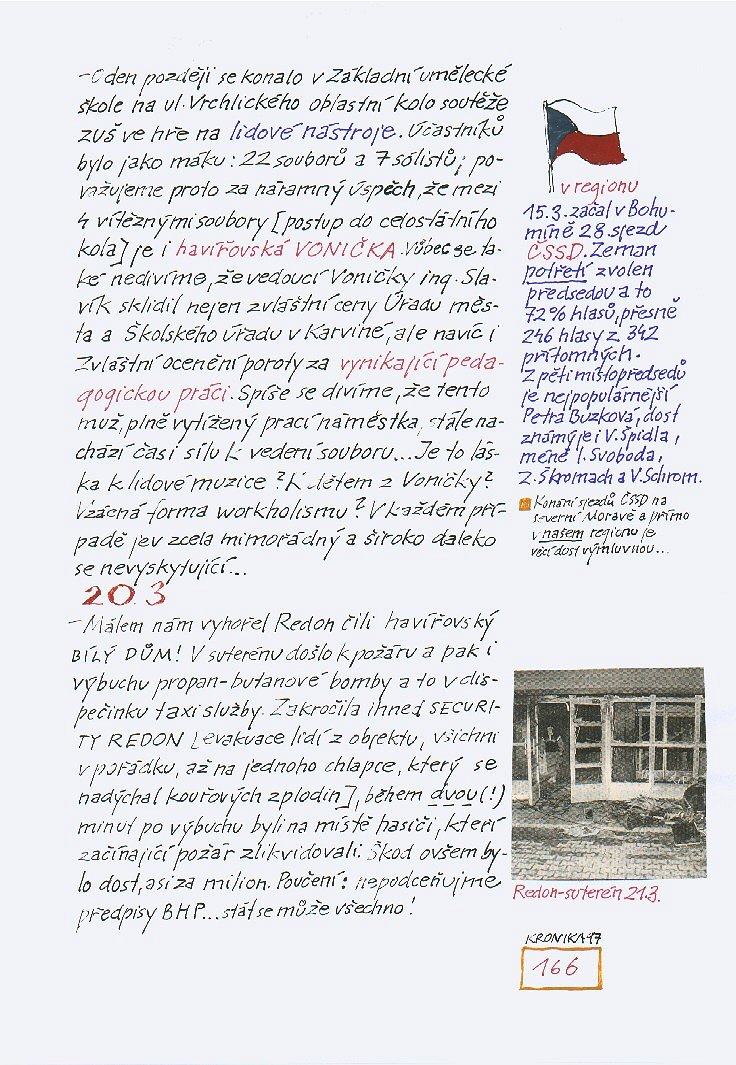 – O den později se konalo v Základní umělecké
škole na ul. Vrchlického oblastní kolo soutěže
ZUŠ ve hře na lidové nástroje. Účastníků
bylo jako máku: 22 souborů a 7 sólistů; po-
važujeme proto za náramný úspěch, že mezi
4 vítěznými soubory [postup do celostátního
kola] je i havířovská VONIČKA. Vůbec se ta-
ké nedivíme, že vedoucí Voničky ing. Sla-
vík sklidil nejen zvláštní ceny Úřadu měs-
ta a Školského úřadu v Karviné, ale navíc i
Zvláštní ocenění poroty za vynikající peda-
gogickou práci. Spíše se divíme, že tento
muž, plně vytížený prací náměstka, stále na-
chází čas i sílu k vedení souboru... Je to lás-
ka k lidové muzice? K dětem z Voničky?
Vzácná forma workholismu? V každém pří-
padě jev zcela mimořádný a široko daleko
se nevyskytující...
20.3
– Málem nám vyhořel Redon čili havířovský
BÍLÝ DŮM! V suterénu došlo k požáru a pak i
výbuchu propan-butanové bomby a to v dis-
pečinku taxislužby. Zakročila ihned SECURI-
TY REDON [evakuace lidí z objektu, všichni
v pořádku, až na jednoho chlapce, který se
nadýchal kouřových zplodin], během dvou (!)
minut po výbuchu byli na místě hasiči, kteří
začínající požár zlikvidovali. Škod ovšem by-
lo dost, asi za milion. Poučení: nepodceňujme
předpisy BHP... stát se může všechno!
v regionu
15.3. začal v Bohu-
míně 28. sjezd
ČSSD. Zeman
potřetí zvolen
předsedou a to
72% hlasů, přesně
246 hlasy z 342
přítomných.
Z pěti místopředsedů
je nejpopulárnější
Petra Buzková, dost
známý je i V. Špidla,
méně I. Svoboda,
Z. Škromach a V. Schrom.
Konání sjezdů ČSSD na
severní Moravě a přímo
v našem regionu je
věcí dost výmluvnou...
Redon-suterén 21.3.
KRONIKA 97
166